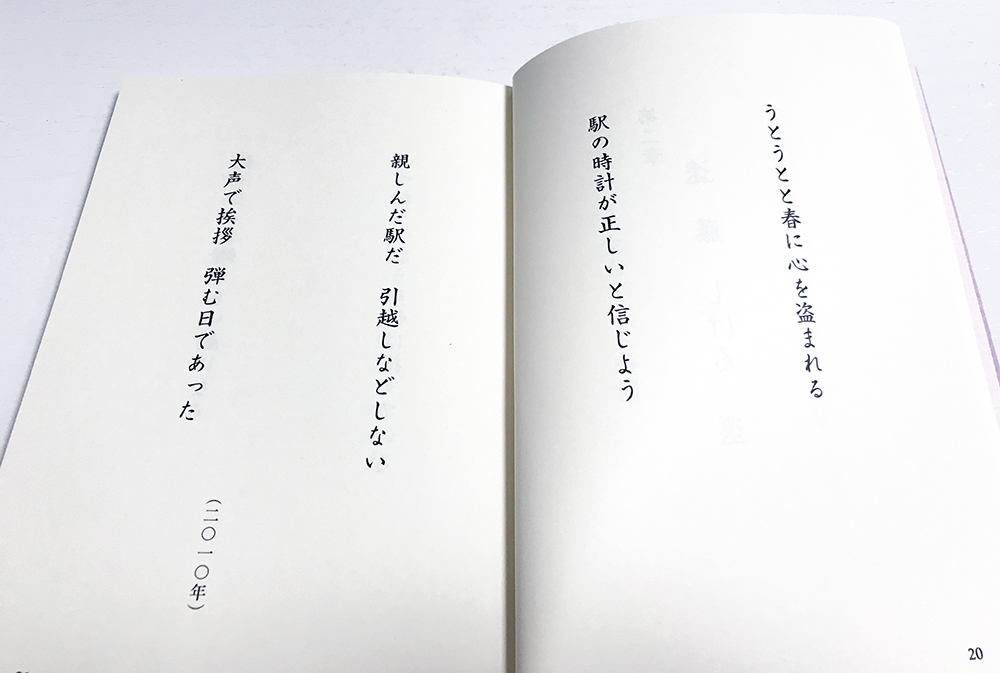 うとうとと春に心を盗まれる
駅の時計が正しいと信じよう
20
親しんだ駅だ　引越しなどしない
大声で挨拶　弾む日であった
（二〇一〇年）